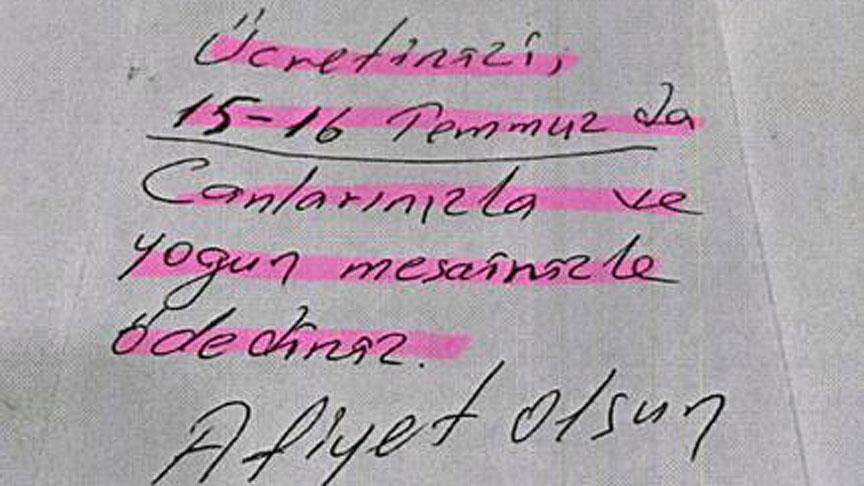 Ücretinizi,
15-16 Temmuz da
Canlarınızla ve
yogun mesainizle
ödediniz.
Afiyet olsun